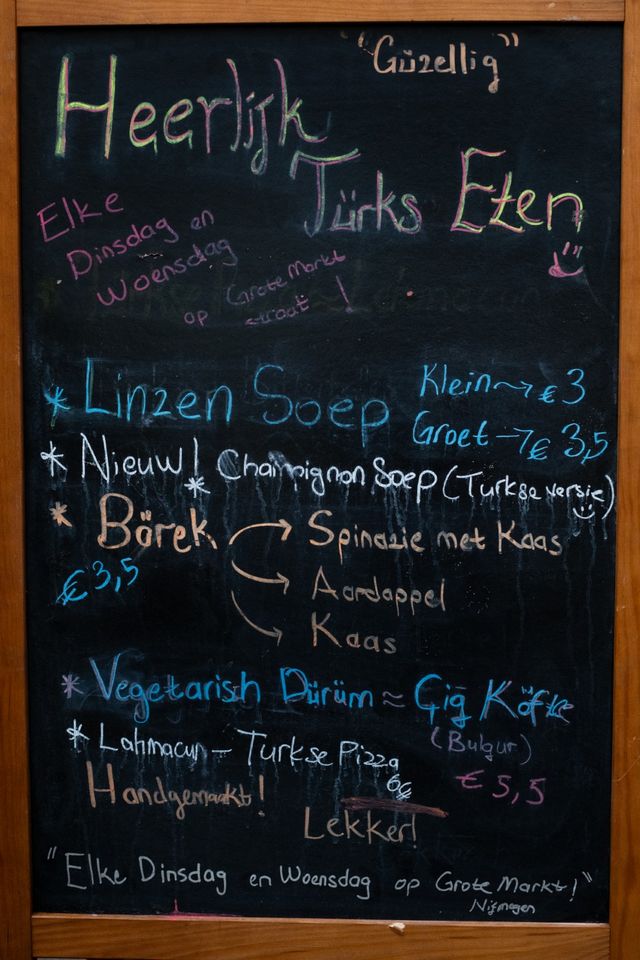 "Güzellig"
Heerlijk
Türks Eten
Elke
Dinsdag en
Woensdag
op Grote Markt
straat!
* Linzen Soep
Klein → € 3
Groet → € 3,5
* Nieuw! * Champignon Soep (Turkse versie)
* Börek
€ 3,5
Spinazie met Kaas
Aardappel
Kaas
* Vegetarish Dürüm ≈ Çiğ Köfte
(Bulgur)
€ 5,5
* Lahmacun – Turkse Pizza
6€
Handgemaakt!
Lekker!
"Elke Dinsdag en Woensdag op Grote Markt!"
Nijmegen